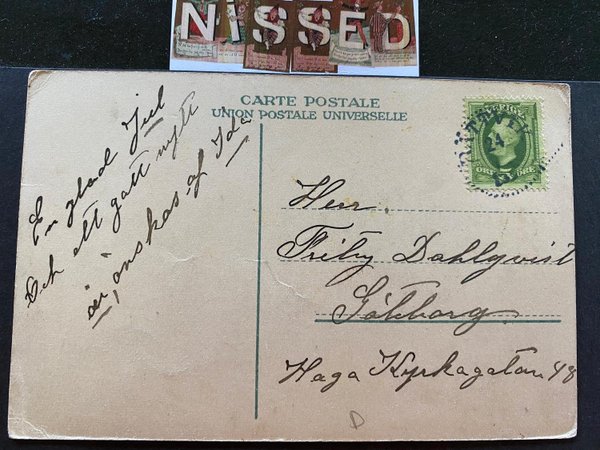 NiSSED
CARTE POSTALE
UNION POSTALE UNIVERSELLE
SVERIGE
RÄTTVIK
24
5
ÖRE ÖRE
En glad Jul
Och ett gott nytt
år, önskas af Ida
Herr
Fritz Dahlqvist
Göteborg
Haga Kyrkagatan 48
D